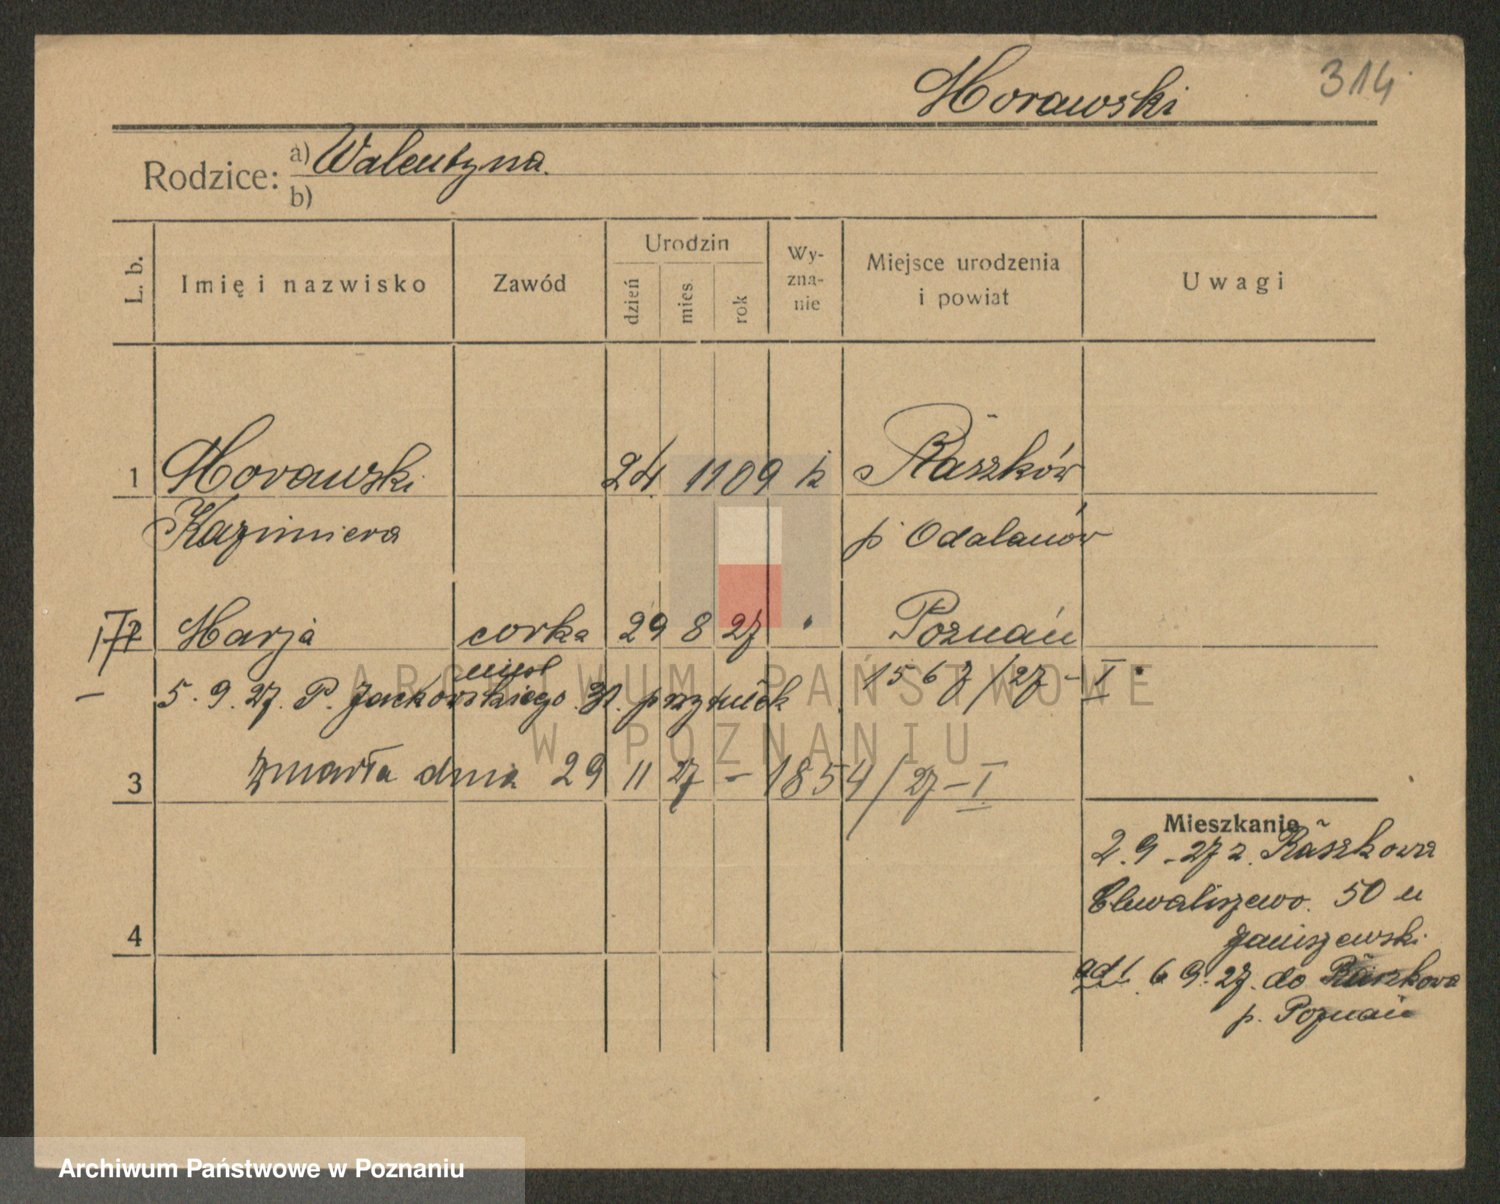 Morawski
314
Rodzice:
a) Walentyna.
b)
L. b.
Imię i nazwisko
Zawód
Urodzin
dzień
mies
rok
Wy-
zna-
nie
Miejsce urodzenia
i powiat
Uwagi
1 Morawski 24. 11 09 k Raszków
Kazimiera p. Odalanów
Marja corka 29 8 27 " Poznań
1567/27 - I
5. 9. 27. P. Jackowskiego 31. przytułek
3 zmarła dnia 29 11 27 - 1854/27 - I
4
Mieszkanie
2. 9 - 27 z. Raszkowa
Chwaliszewo. 50 u
Janiszewski.
ad 1. 6 9. 27. do Raszkowa
p. Poznań
ARCHIWUM PAŃSTWOWE
W POZNANIU
Archiwum Państwowe w Poznaniu